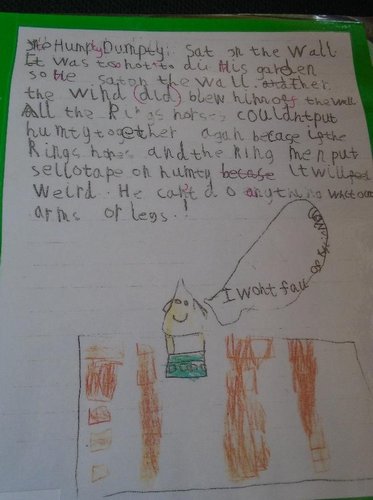 Humpty Dumpty sat on the wall
It was too hot to du His garden
so He sat on the wall and then
the wind (did) blew him off the wall
All the Kings horses couldnt put
humty together again becase if the
Kings horses and the King men put
sellotape on humty becase it will
Weird. He cant do anything without
arms or legs.!
I wont fall